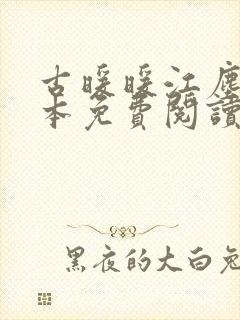 古暖暖江塵
本免費閱讀
黑夜的大白兔